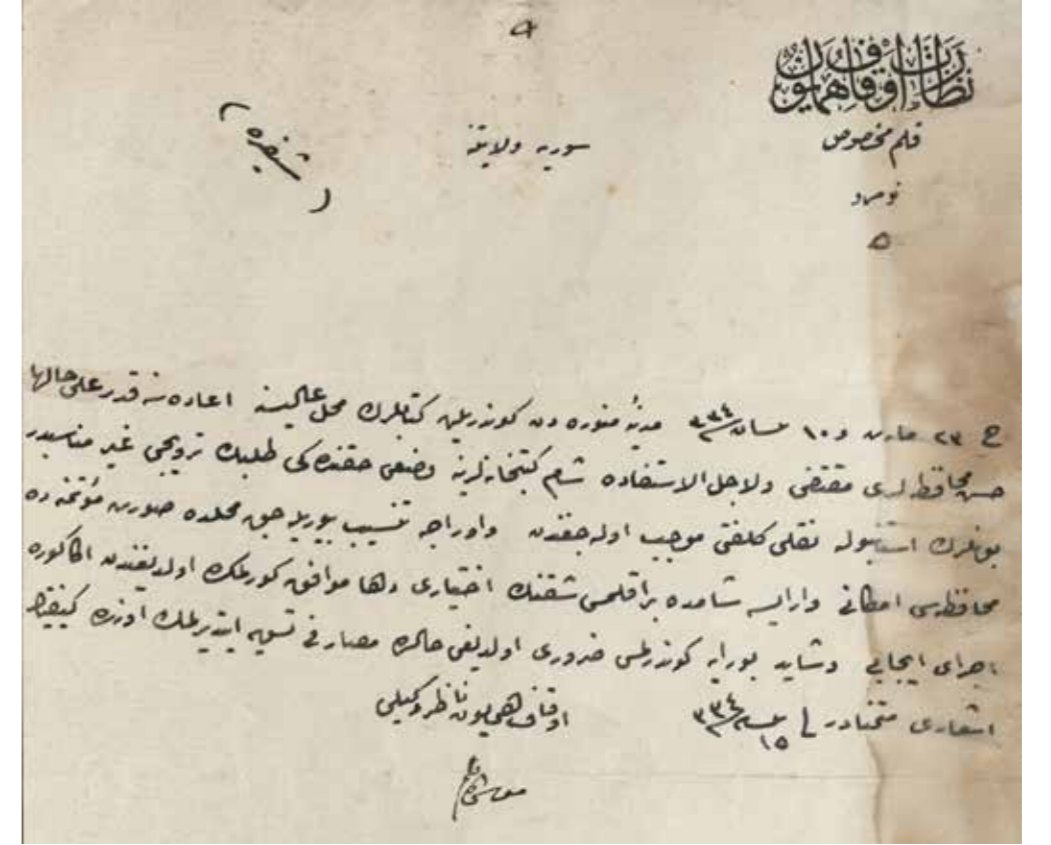 ٩
نظارت اوقاف همايون
قلم مخصوص
نومرو
٥
سوريه ولايتنه
(شفره)
ج ٢٣ مارت و ١٠ نيسان ٣٣٤ مدينۀ منوره دن كوندريلن كتابلرك محل عاليسنه اعاده سنه قدر على حالها
حسن محافظه لرى مقتضى ولاجل الاستفاده شام كتبخانه لرينه وضعى حقنده كى طلبك ترويجى غير مناسبدر
بونلرك استانبوله نقلى كلفتى موجب اوله جغندن واوراجه تنسيب بيوريله جق محلده صورت موقته ده
محافظه سى امكانى وارايسه شامده براقلمسى شقنك اختيارى دها موافق كورلمك اولديغندن اكا كوره
اجراى ايجابى وشايد بورايه كوندرلمسى ضرورى اولديغى حالده مصارفى تسويه ايتديرلمك اوزره كيفيتك
اشعارى متمنادر ١٥ نيسان ٣٣٤
اوقاف همايون ناظر وكيلى
موسى كاظم